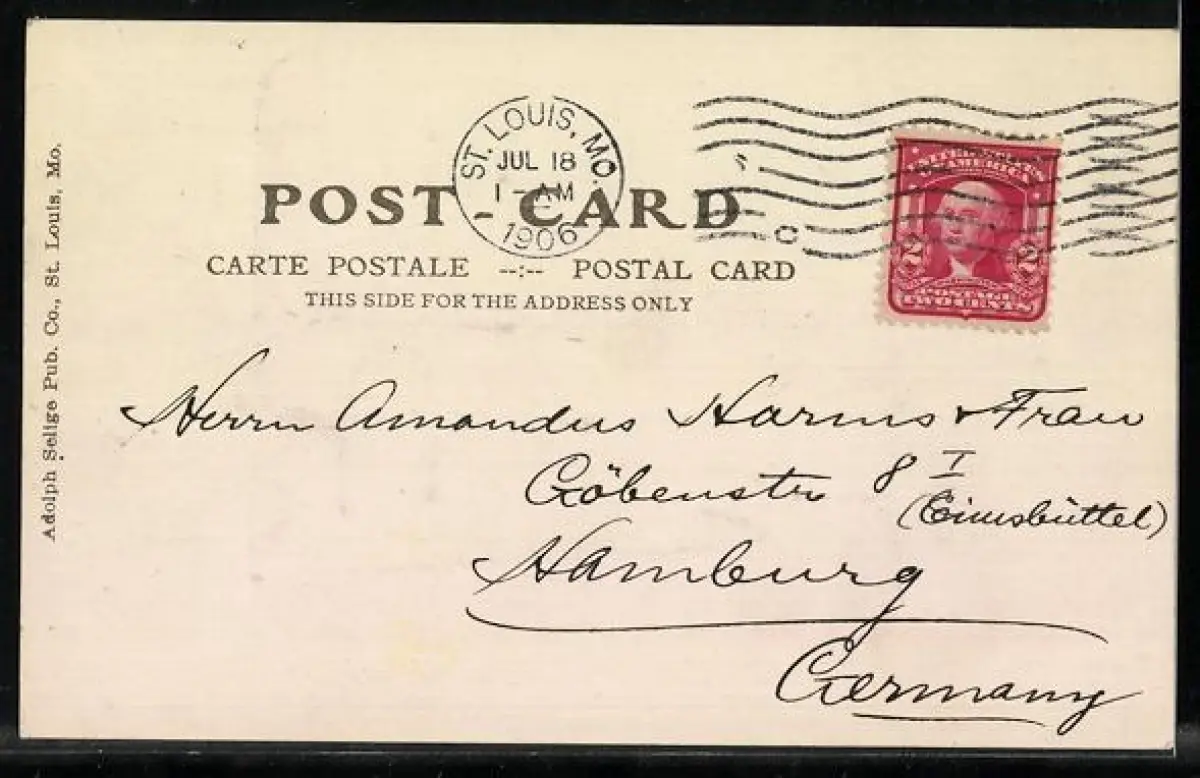 Adolph Selige Pub. Co., St. Louis, Mo.
ST. LOUIS, MO.
JUL 18
1 - AM
1906
POST-CARD
CARTE POSTALE --:-- POSTAL CARD
THIS SIDE FOR THE ADDRESS ONLY
UNITED STATES
OF AMERICA
2 2
POSTAGE
TWO CENTS
C
Herrn Amandus Harms & Frau
Göbenstr 8 I
(Eimsbüttel)
Hamburg
Germany